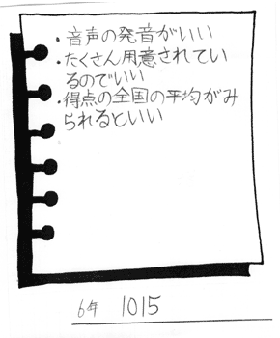 ・音声の発音がいい
・たくさん用意されてい
るのでいい
・得点の全国の平均がみ
られるといい
6年 1015